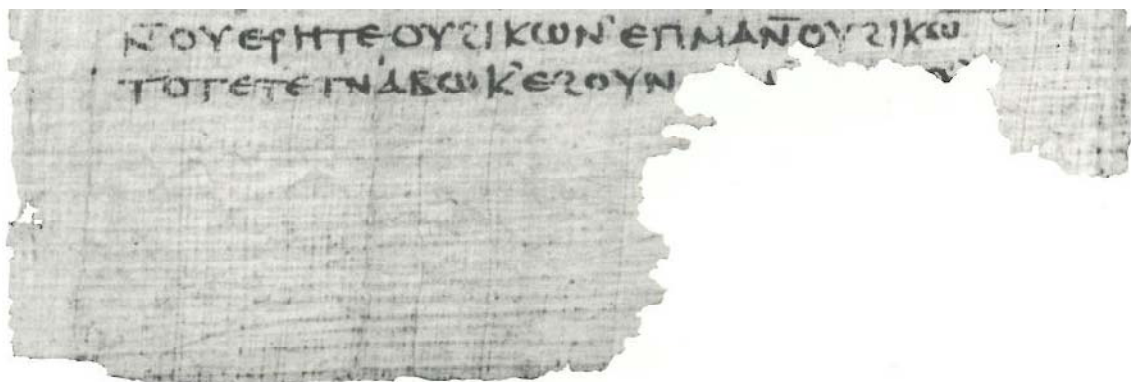 ⲛ̄ⲟⲩⲉⲣⲏⲧⲉⲟⲩϩⲓⲕⲱⲛ'ⲉⲡⲙⲁⲛ̄ⲟⲩϩⲓⲕⲱ
ⲧⲟⲧⲉⲧⲉⲧⲛⲁⲃⲱⲕ'ⲉϩⲟⲩⲛ